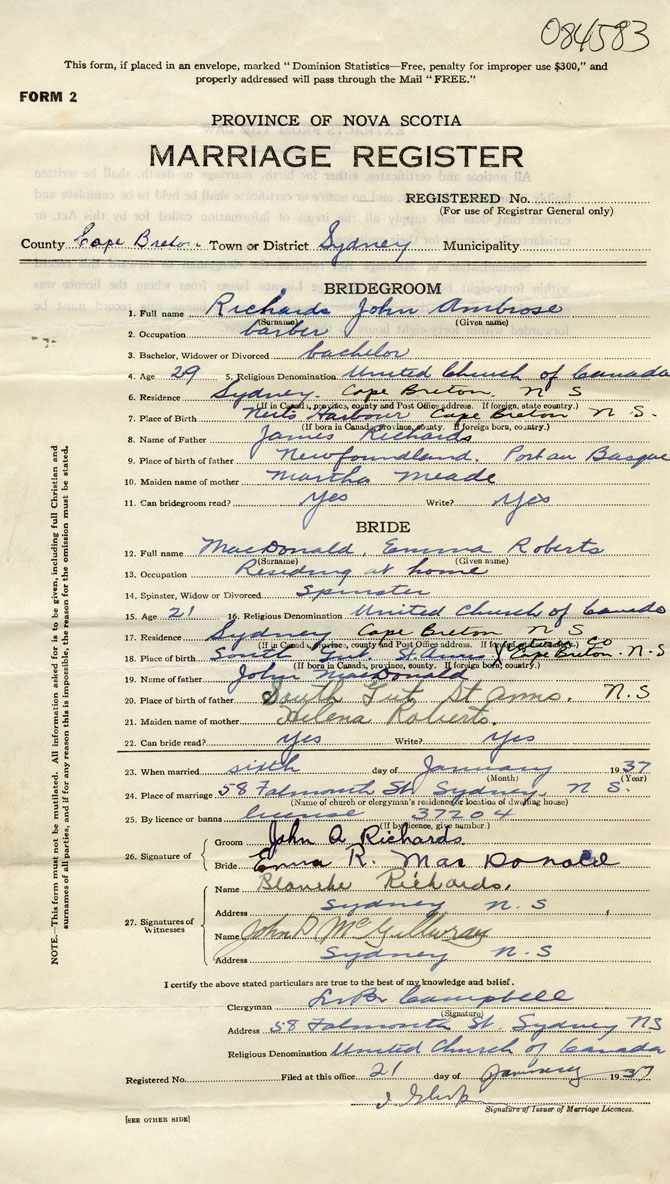 084583
This form, if placed in an envelope, marked "Dominion Statistics—Free, penalty for improper use $300," and
properly addressed will pass through the Mail "FREE."
FORM 2
PROVINCE OF NOVA SCOTIA
MARRIAGE REGISTER
REGISTERED No.
(For use of Registrar General only)
County Cape Breton Town or District Sydney Municipality
BRIDEGROOM
1. Full name Richards John Ambrose
(Surname) (Given name)
2. Occupation barber
3. Bachelor, Widower or Divorced bachelor
4. Age 29 5. Religious Denomination United Church of Canada
6. Residence Sydney. Cape Breton. N S
(If in Canada, province, county and Post Office address. If foreign, state country.)
7. Place of Birth Harbour Cape Breton N. S.
(If born in Canada, province, county. If foreign born, country.)
8. Name of Father James Richards
9. Place of birth of father Newfoundland. Port au Basque
10. Maiden name of mother Martha Meade
11. Can bridegroom read? Yes Write? Yes
BRIDE
12. Full name MacDonald, Emma Roberts
(Surname) (Given name)
13. Occupation Residing at home
14. Spinster, Widow or Divorced Spinster
15. Age 21 16. Religious Denomination United Church of Canada
17. Residence Sydney Cape Breton N S
(If in Canada, province, county and Post Office address. If foreign, state country.)
18. Place of birth South Gut. St. Anns Cape Breton. N-S
(If born in Canada, province, county. If foreign born, country.)
19. Name of father John MacDonald
20. Place of birth of father South Gut St Anns. N.S
21. Maiden name of mother Helena Roberts.
22. Can bride read? Yes Write? Yes
23. When married sixth day of January 1937
(Month) (Year)
24. Place of marriage 58 Falmouth St. Sydney, N S.
(Name of church or clergyman's residence or location of dwelling house)
25. By licence or banns license 37204
(If by licence, give number.)
26. Signature of
Groom John A Richards.
Bride Emma R. MacDonald
27. Signatures of Witnesses
Name Blanche Richards,
Address Sydney N. S
Name John D McGillivray
Address Sydney N. S
I certify the above stated particulars are true to the best of my knowledge and belief.
Clergyman Campbell
(Signature)
Address 58 Falmouth St. Sydney NS
Religious Denomination United Church of Canada
Registered No. Filed at this office 21 day of January 1937
Signature of Issuer of Marriage Licences.
[SEE OTHER SIDE]
NOTE.—This form must not be mutilated. All information asked for is to be given, including full Christian and
surnames of all parties, and if for any reason this is impossible, the reason for the omission must be stated.